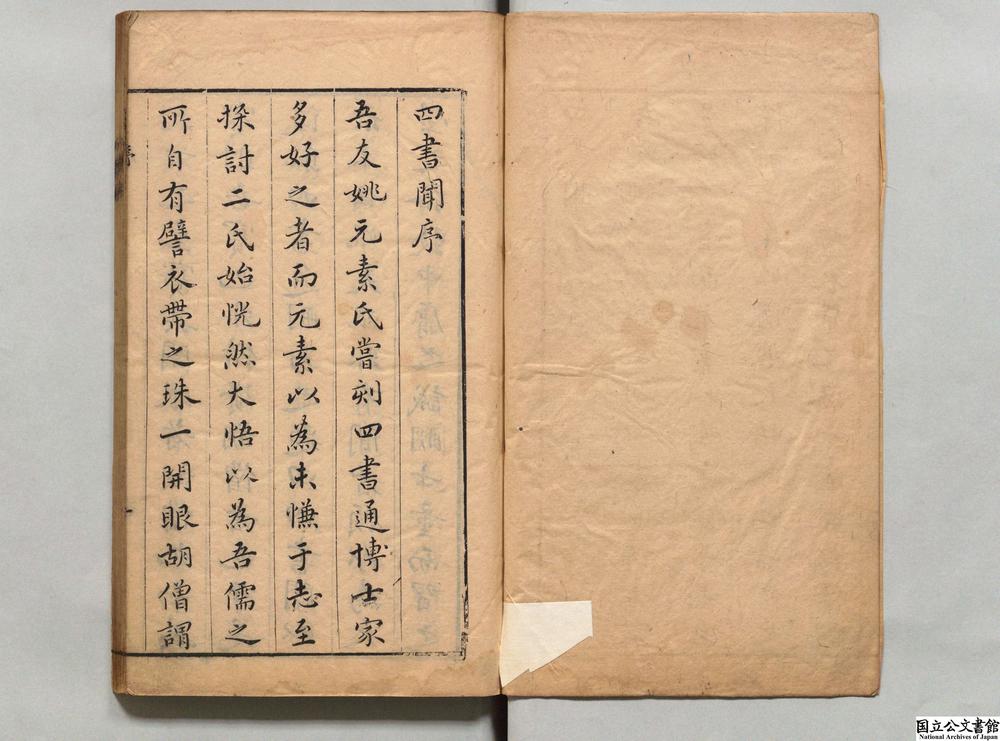 四書聞序
吾友姚元素氏嘗刻四書通博士家
多好之者而元素以為未慊于志至
探討二氏始恍然大悟以為吾儒之
所自有譬衣帶之珠一開眼胡僧謂
序
一
国立公文書館
National Archives of Japan